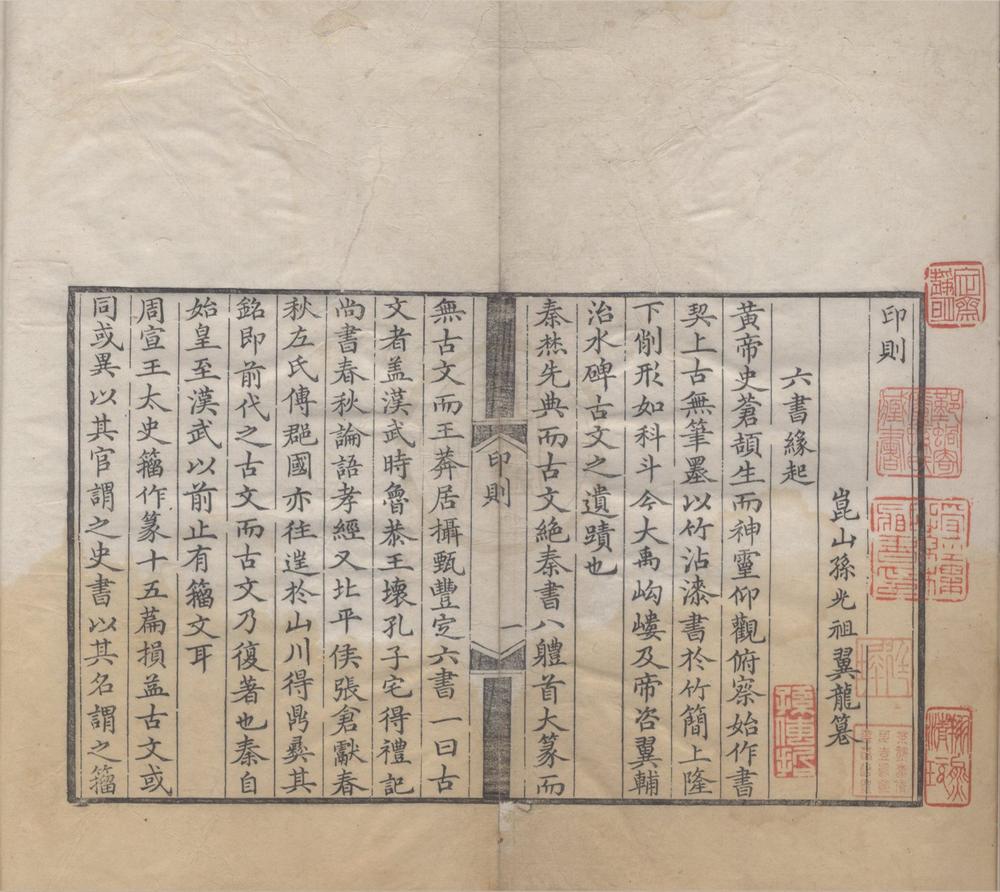 印則
崑山孫光祖翼龍篹
六書緣起
黃帝史蒼頡生而神靈仰觀俯察始作書
契上古無筆墨以竹沾漆書於竹簡上隆
下削形如科斗今大禹岣嶁及帝咨翼輔
治水碑古文之遺蹟也
秦焚先典而古文絕秦書八軆首大篆而
印則
一
無古文而王莽居攝甄豐定六書一曰古
文者盖漢武時魯恭王壞孔子宅得禮記
尚書春秋論語孝經又北平侯張倉獻春
秋左氏傳郡國亦往往於山川得鼎彝其
銘即前代之古文而古文乃復著也秦自
始皇至漢武以前止有籀文耳
周宣王太史籀作篆十五篇損益古文或
同或異以其官謂之史書以其名謂之籀